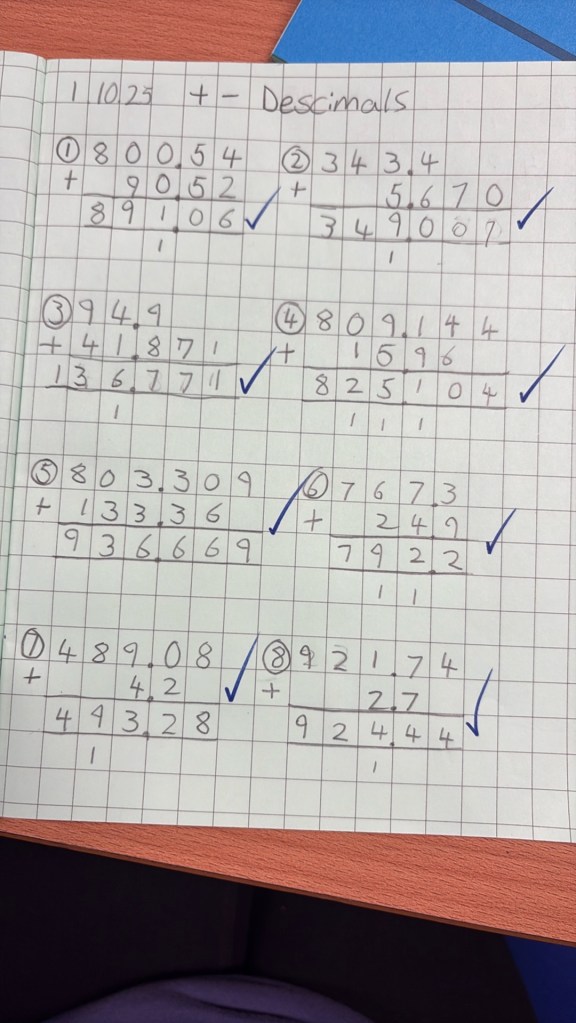 1 10 25 + - Descimals
① 800.54 ② 343.4
+ 90.52 + 5.670
891.06 349.007
1 1
③ 94.9 ④ 809.144
+ 41.871 + 15.96
136.771 825.104
1 1 1 1
⑤ 803.309 ⑥ 767.3
+ 133.36 + 24.9
936.669 792.2
1 1
⑦ 489.08 ⑧ 921.74
+ 4.2 + 2.7
493.28 924.44
1 1